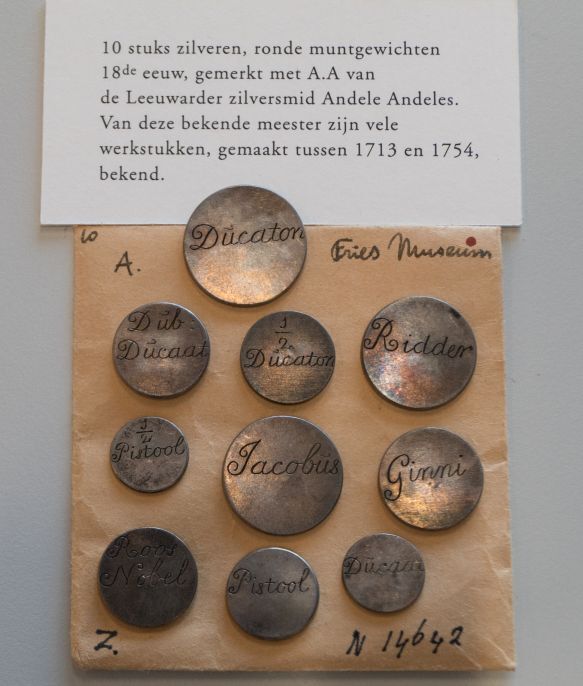 10 stuks zilveren, ronde muntgewichten
18de eeuw, gemerkt met A.A van
de Leeuwarder zilversmid Andele Andeles.
Van deze bekende meester zijn vele
werkstukken, gemaakt tussen 1713 en 1754,
bekend.
10
A.
Fries Museum
Dūcaton
Dūb:
Dūcaat
1/2
Dūcaton
Ridder
1/2
Pistool
Jacobūs
Ginni
Roos
Nobel
Pistool
Dūcaat
Z.
N 14642